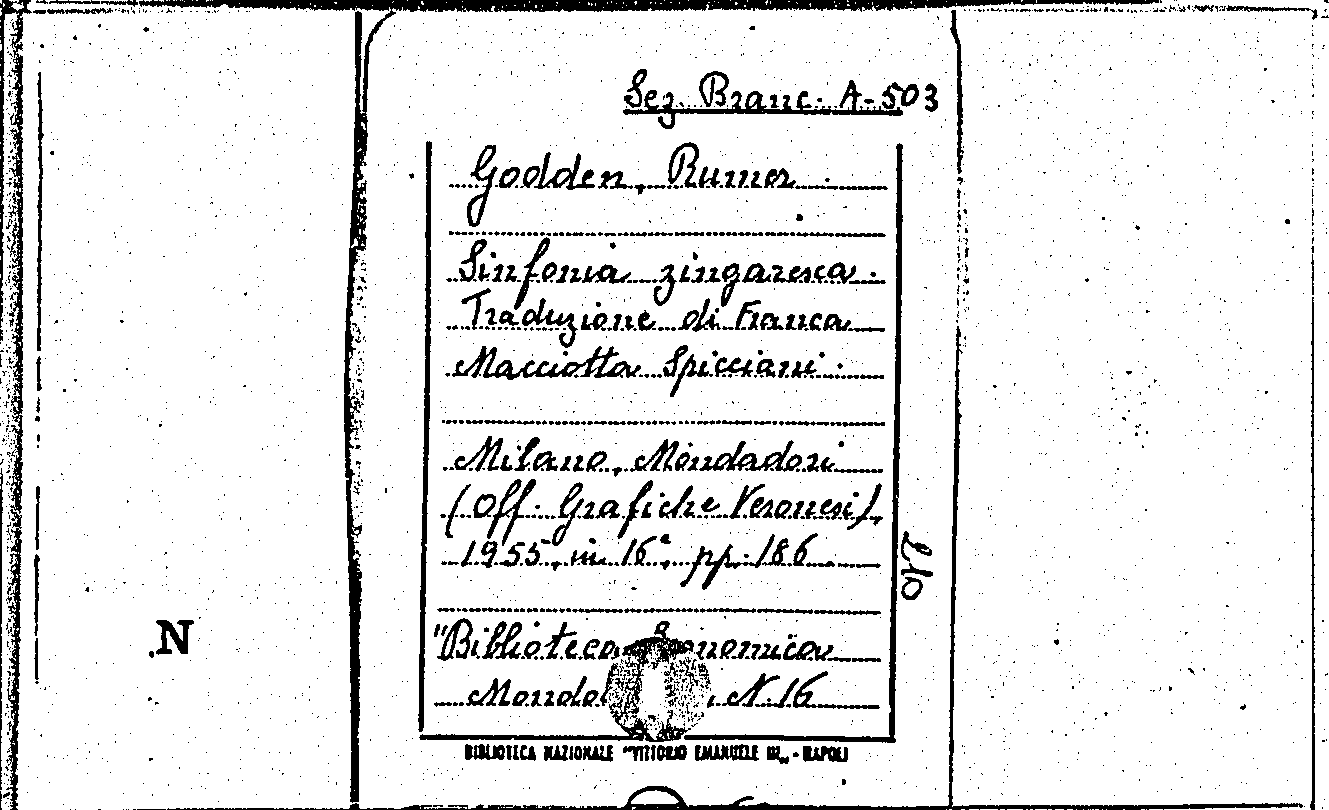 Sez. Branc. A-503
Godden, Rumer.
Sinfonia zingaresca.
Traduzione di Franca
Macciotta Spicciani.
Milano, Mondadori
(Off. Grafiche Veronesi),
1955, in 16°, pp. 186
"Biblioteca Economica
N. 16
BIBLIOTECA NAZIONALE "VITTORIO EMANUELE III" - NAPOLI
N